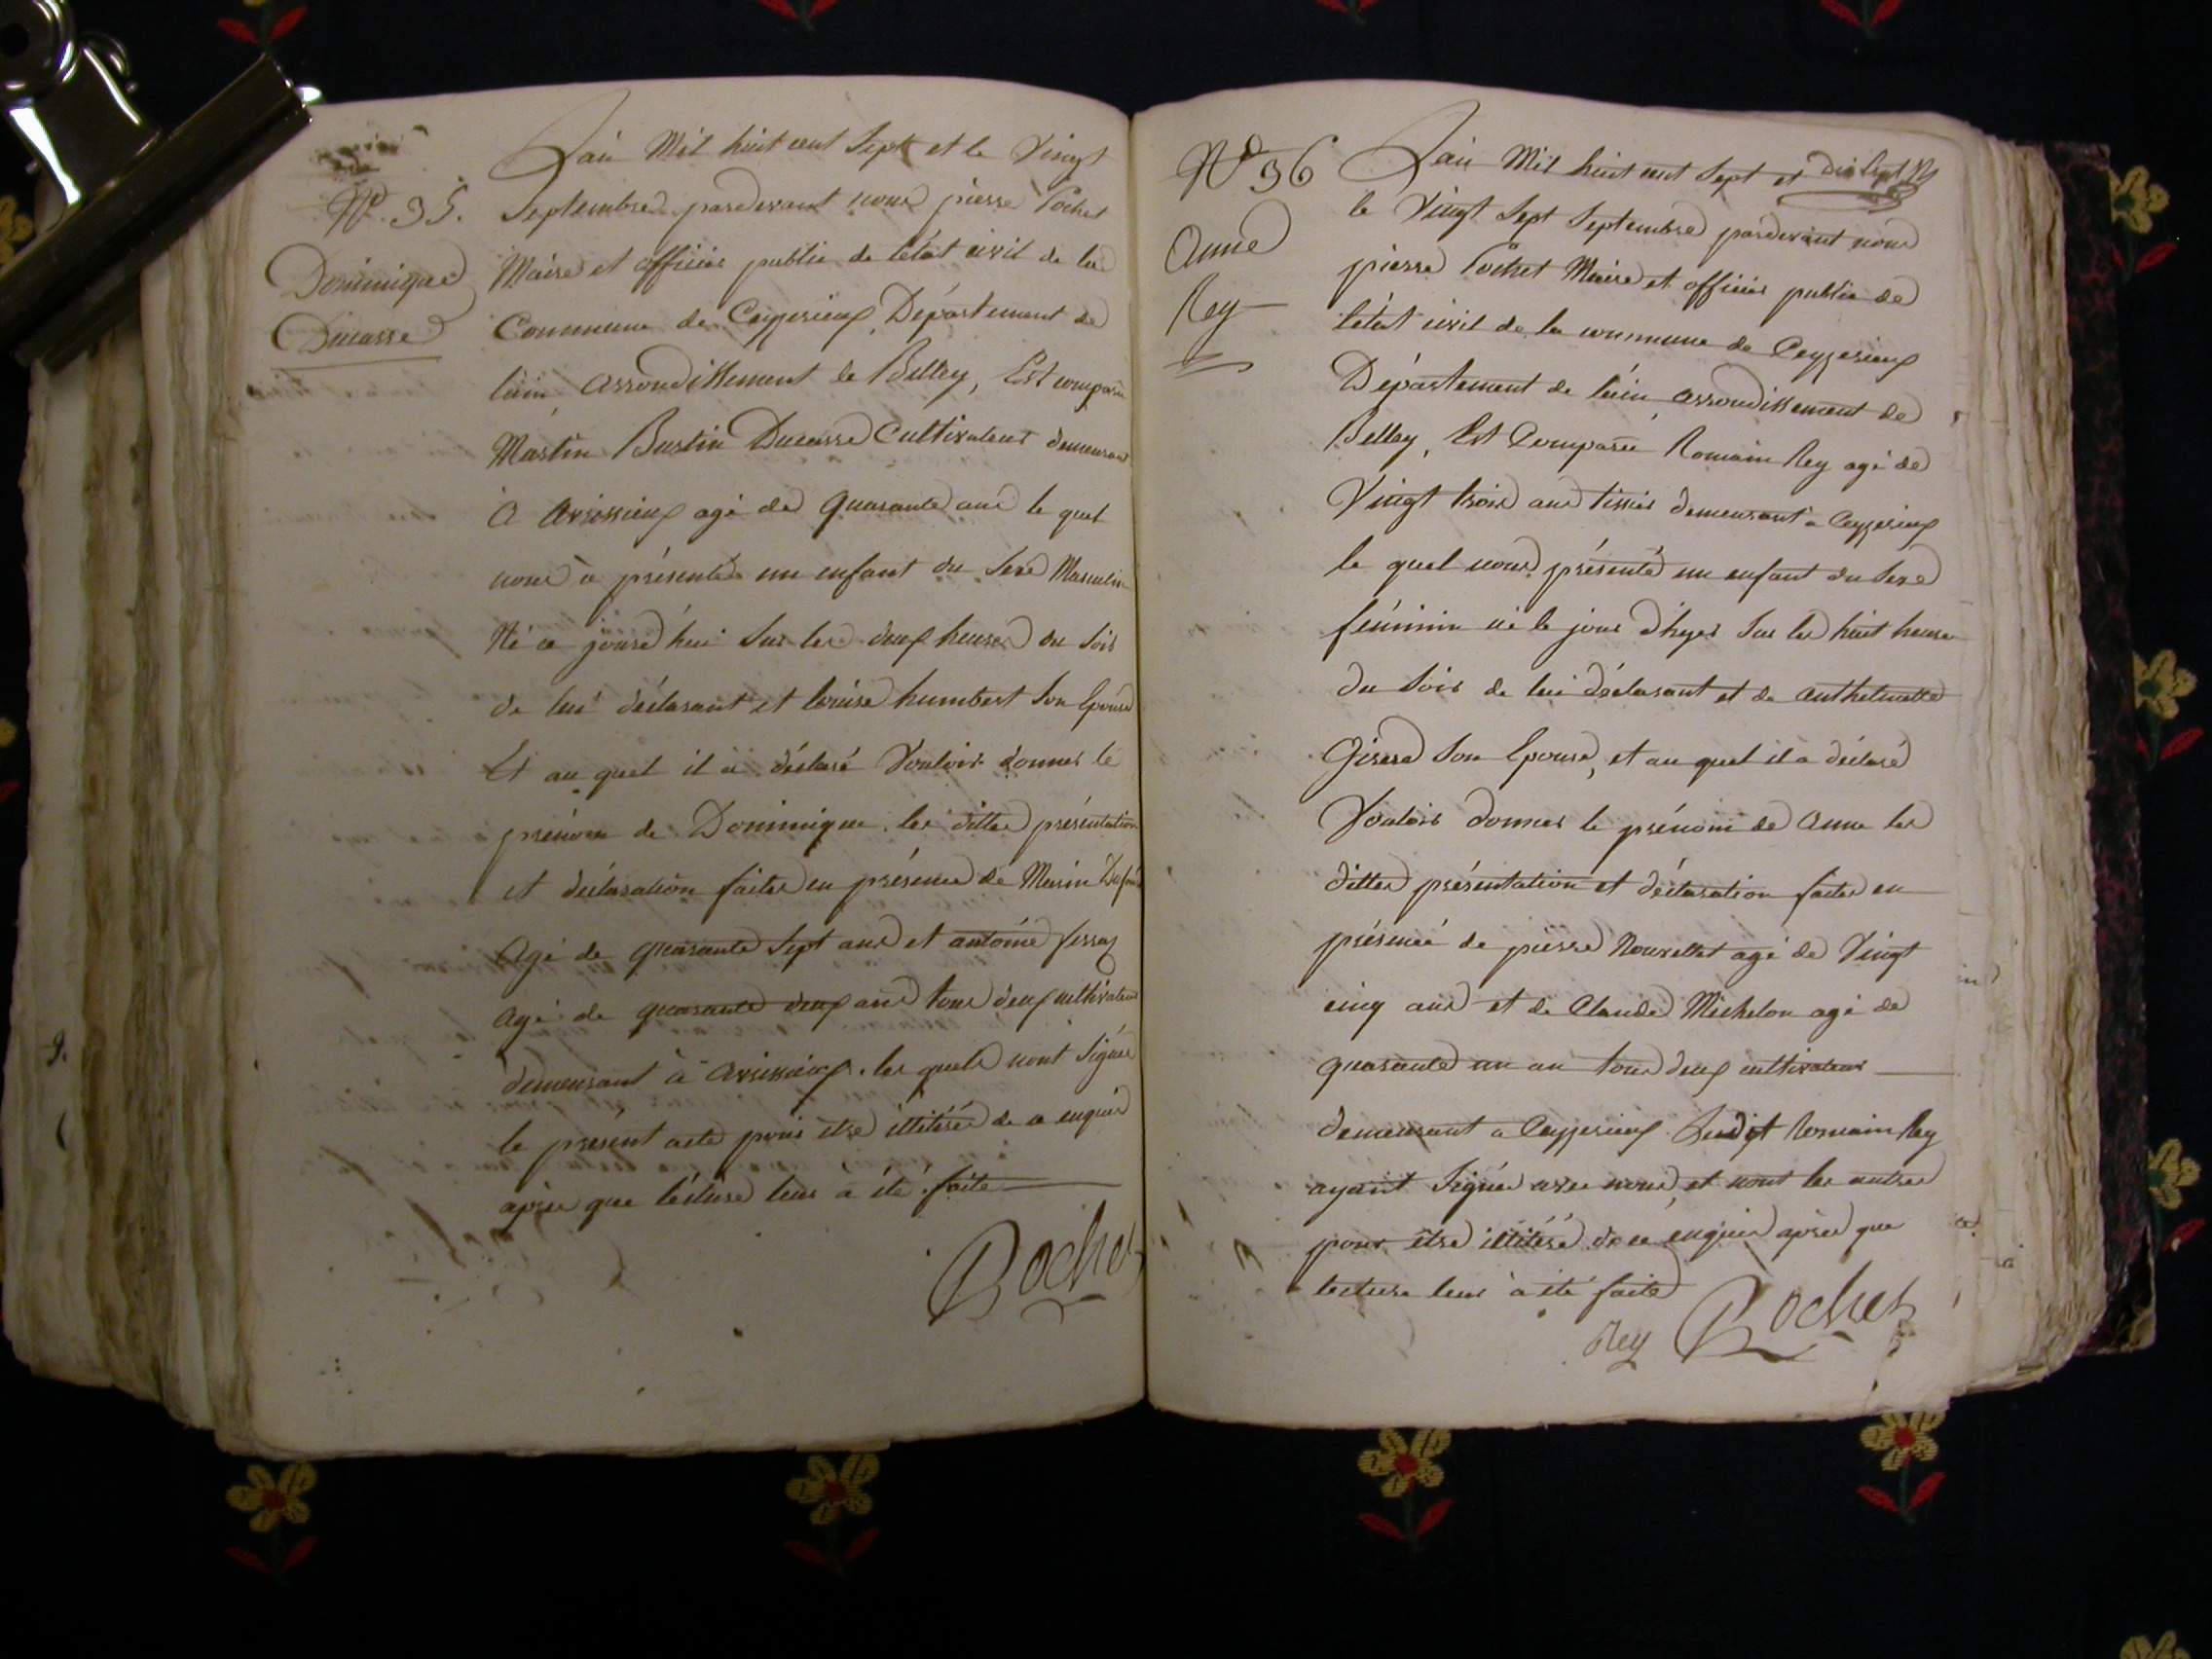 N.º 35.
Dominique
Ducasse
Lan Mil huit cent Sept et le Vingt
Septembre pardevant nous pierre Pochet
Maire et officier public de létat civil de la
Commune de Ceyzerieux, Département de
lain arrondissement de Belley, Est comparu
Martin Bustin Ducasse Cultivateur demeurant
à avrissieux agé de quarante ans le quel
nous à présenté un enfant du Sexe Masculin
Né ce jourd'hui sur les deux heures du soir
de lui déclarant et louise humbert son Epouse
Et au quel il à déclaré Vouloir donner le
prénom de Dominique. les dittes présentation
et déclaration faites en présence de Marin
Agé de quarante Sept ans et antoine
agé de quarante deux ans tous deux cultivateurs
demeurant à avrissieux. les quels nont Signés
le présent acte pour etre illitéré de ce enquis
après que lécture leur a été faite
Pochet
N.º 36
Anne
Rey
Lan Mil huit cent Sept et
le Vingt Sept Septembre pardevant nous
pierre Pochet Maire et officier public de
létat civil de la commune de Ceyzerieux
Département de lain arrondissement de
Belley, Est Comparu Romain Rey agé de
Vingt trois ans tissier demeurant a Ceyzerieux
le quel nous présenté un enfant du Sexe
féminin né le jour d'hyer sur les huit heures
du soir de lui déclarant et de anthelmette
son Epouse, et au quel il a déclaré
Vouloir donner le prénom de anne les
dittes présentation et déclaration faites en
présence de pierre Nouvellet agé de Vingt
cinq ans et de Claude Michelon agé de
quarante un an tous deux cultivateur
demeurant a Ceyzerieux Ledit Romain Rey
ayant Signé avec nous, et nont les autres
pour etre illitéré de ce enquis après que
lecture leur à été faite
Rey Pochet